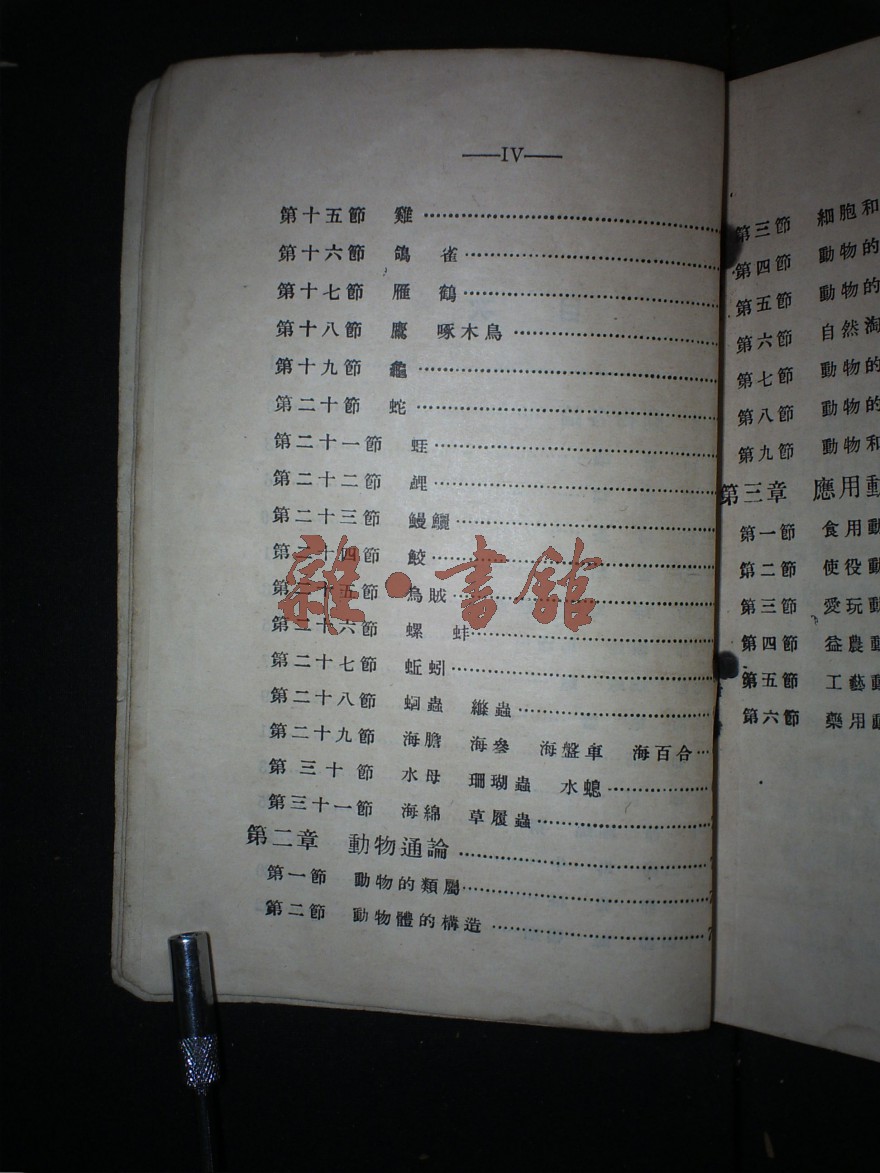 ——IV——
第十五節 雞
第十六節 鴿 雀
第十七節 雁 鶴
第十八節 鷹 啄木鳥
第十九節 龜
第二十節 蛇
第二十一節 蛙
第二十二節 鯉
第二十三節 鰻鱺
第二十四節 鮫
第二十五節 烏賊
第二十六節 螺 蚌
第二十七節 蚯蚓
第二十八節 蛔蟲 縧蟲
第二十九節 海膽 海參 海盤車 海百合
第三十節 水母 珊瑚蟲 水螅
第三十一節 海綿 草履蟲
第二章 動物通論
第一節 動物的類屬
第二節 動物體的構造
雜·書館
第三節 細胞和
第四節 動物的
第五節 動物的
第六節 自然淘
第七節 動物的
第八節 動物的
第九節 動物和
第三章 應用動
第一節 食用動
第二節 使役動
第三節 愛玩動
第四節 益農動
第五節 工藝動
第六節 藥用動